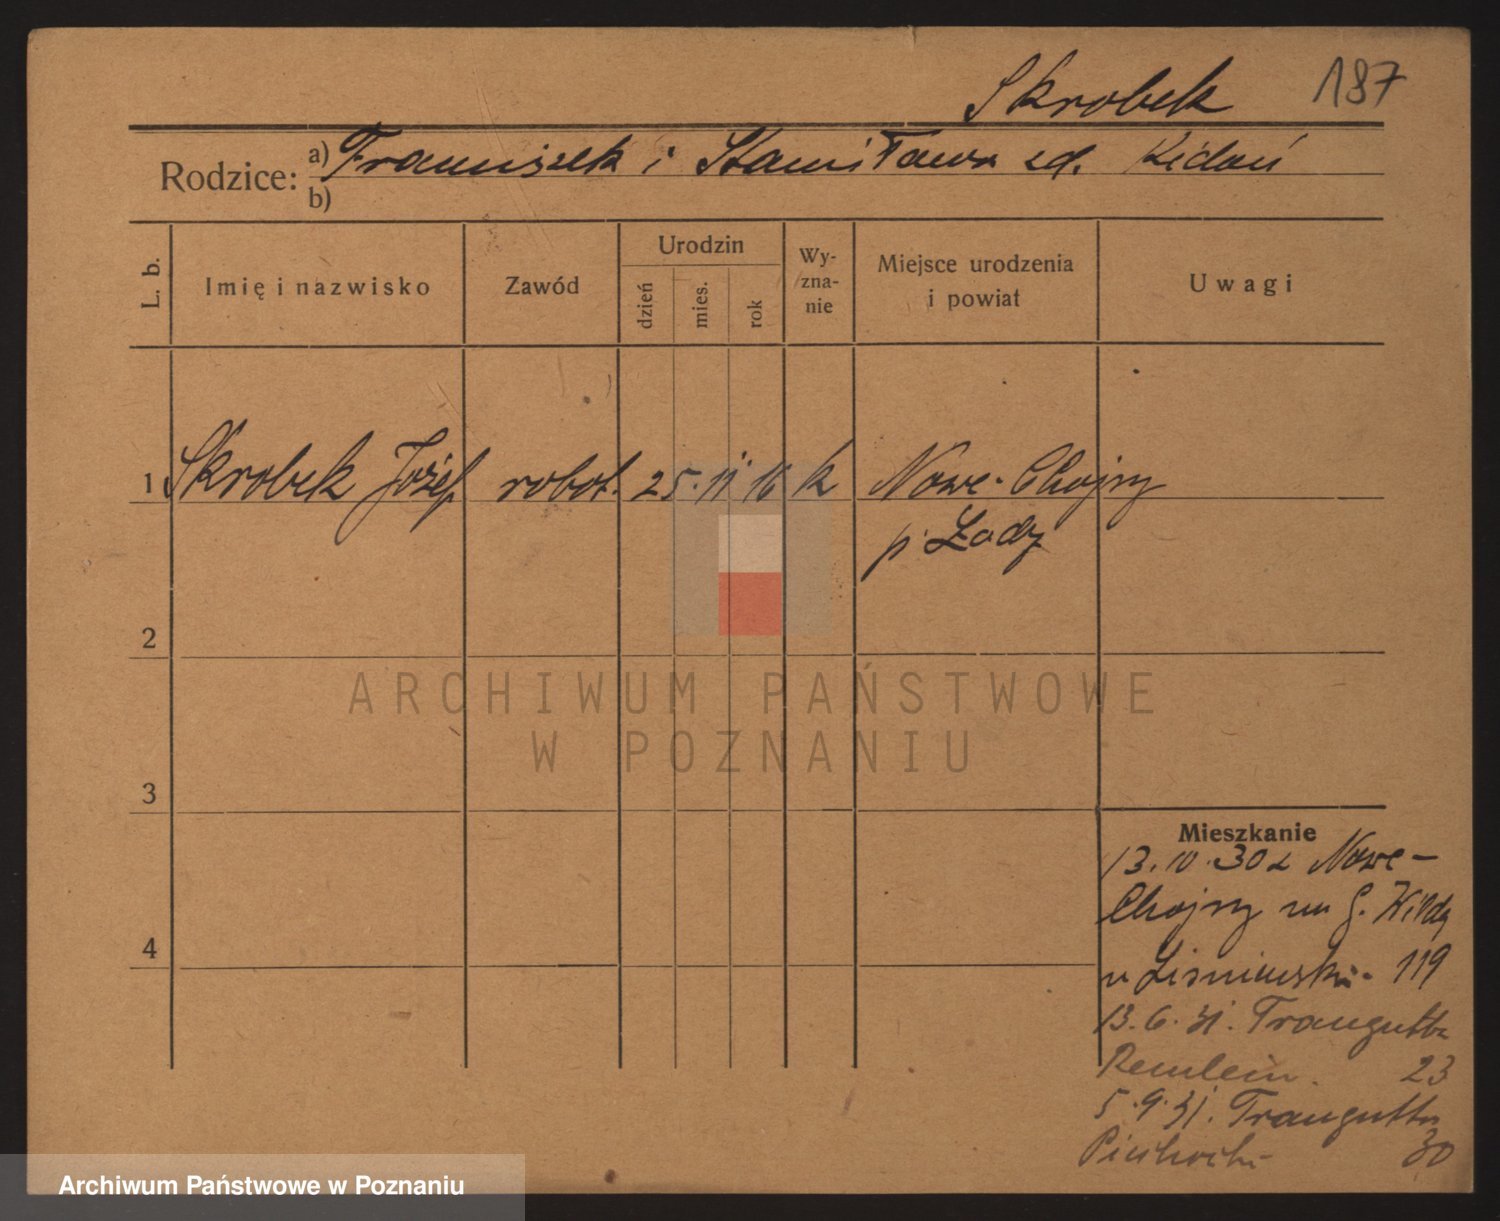 Skrobek 187
Rodzice: a) Franciszek i Stanisława zd. Kidoń
b)
L. b.
Imię i nazwisko
Zawód
Urodzin
dzień
mies.
rok
Wy-
zna-
nie
Miejsce urodzenia
i powiat
Uwagi
1 Skrobek Józef robot. 25. 11 16 k Nowe-Chojny
p. Łodzy
2
ARCHIWUM PAŃSTWOWE
W POZNANIU
3
4
Mieszkanie
13. 10. 30 z Nowe-
Chojny na G. Wildę
u Liśniewski. 119
13. 6. 31. Traugutta
Remlein. 23
5. 9. 31. Traugutta
30
Archiwum Państwowe w Poznaniu